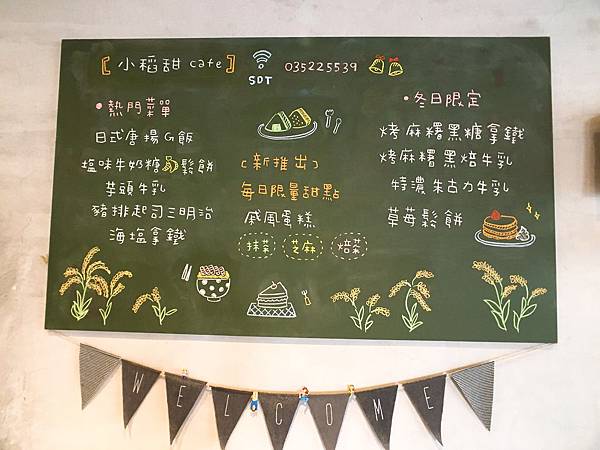 [小稻甜 cafe] SDT 035225539
•熱門菜單
日式唐揚G飯
塩味牛奶糖鬆餅
芋頭牛乳
豬排起司三明治
海塩拿鐵
(新推出)
每日限量甜點
戚風蛋糕
抹茶 芝麻 焙茶
•冬日限定
烤麻糬黑糖拿鐵
烤麻糬黑焙牛乳
特濃朱古力牛乳
草莓鬆餅
WELCOME